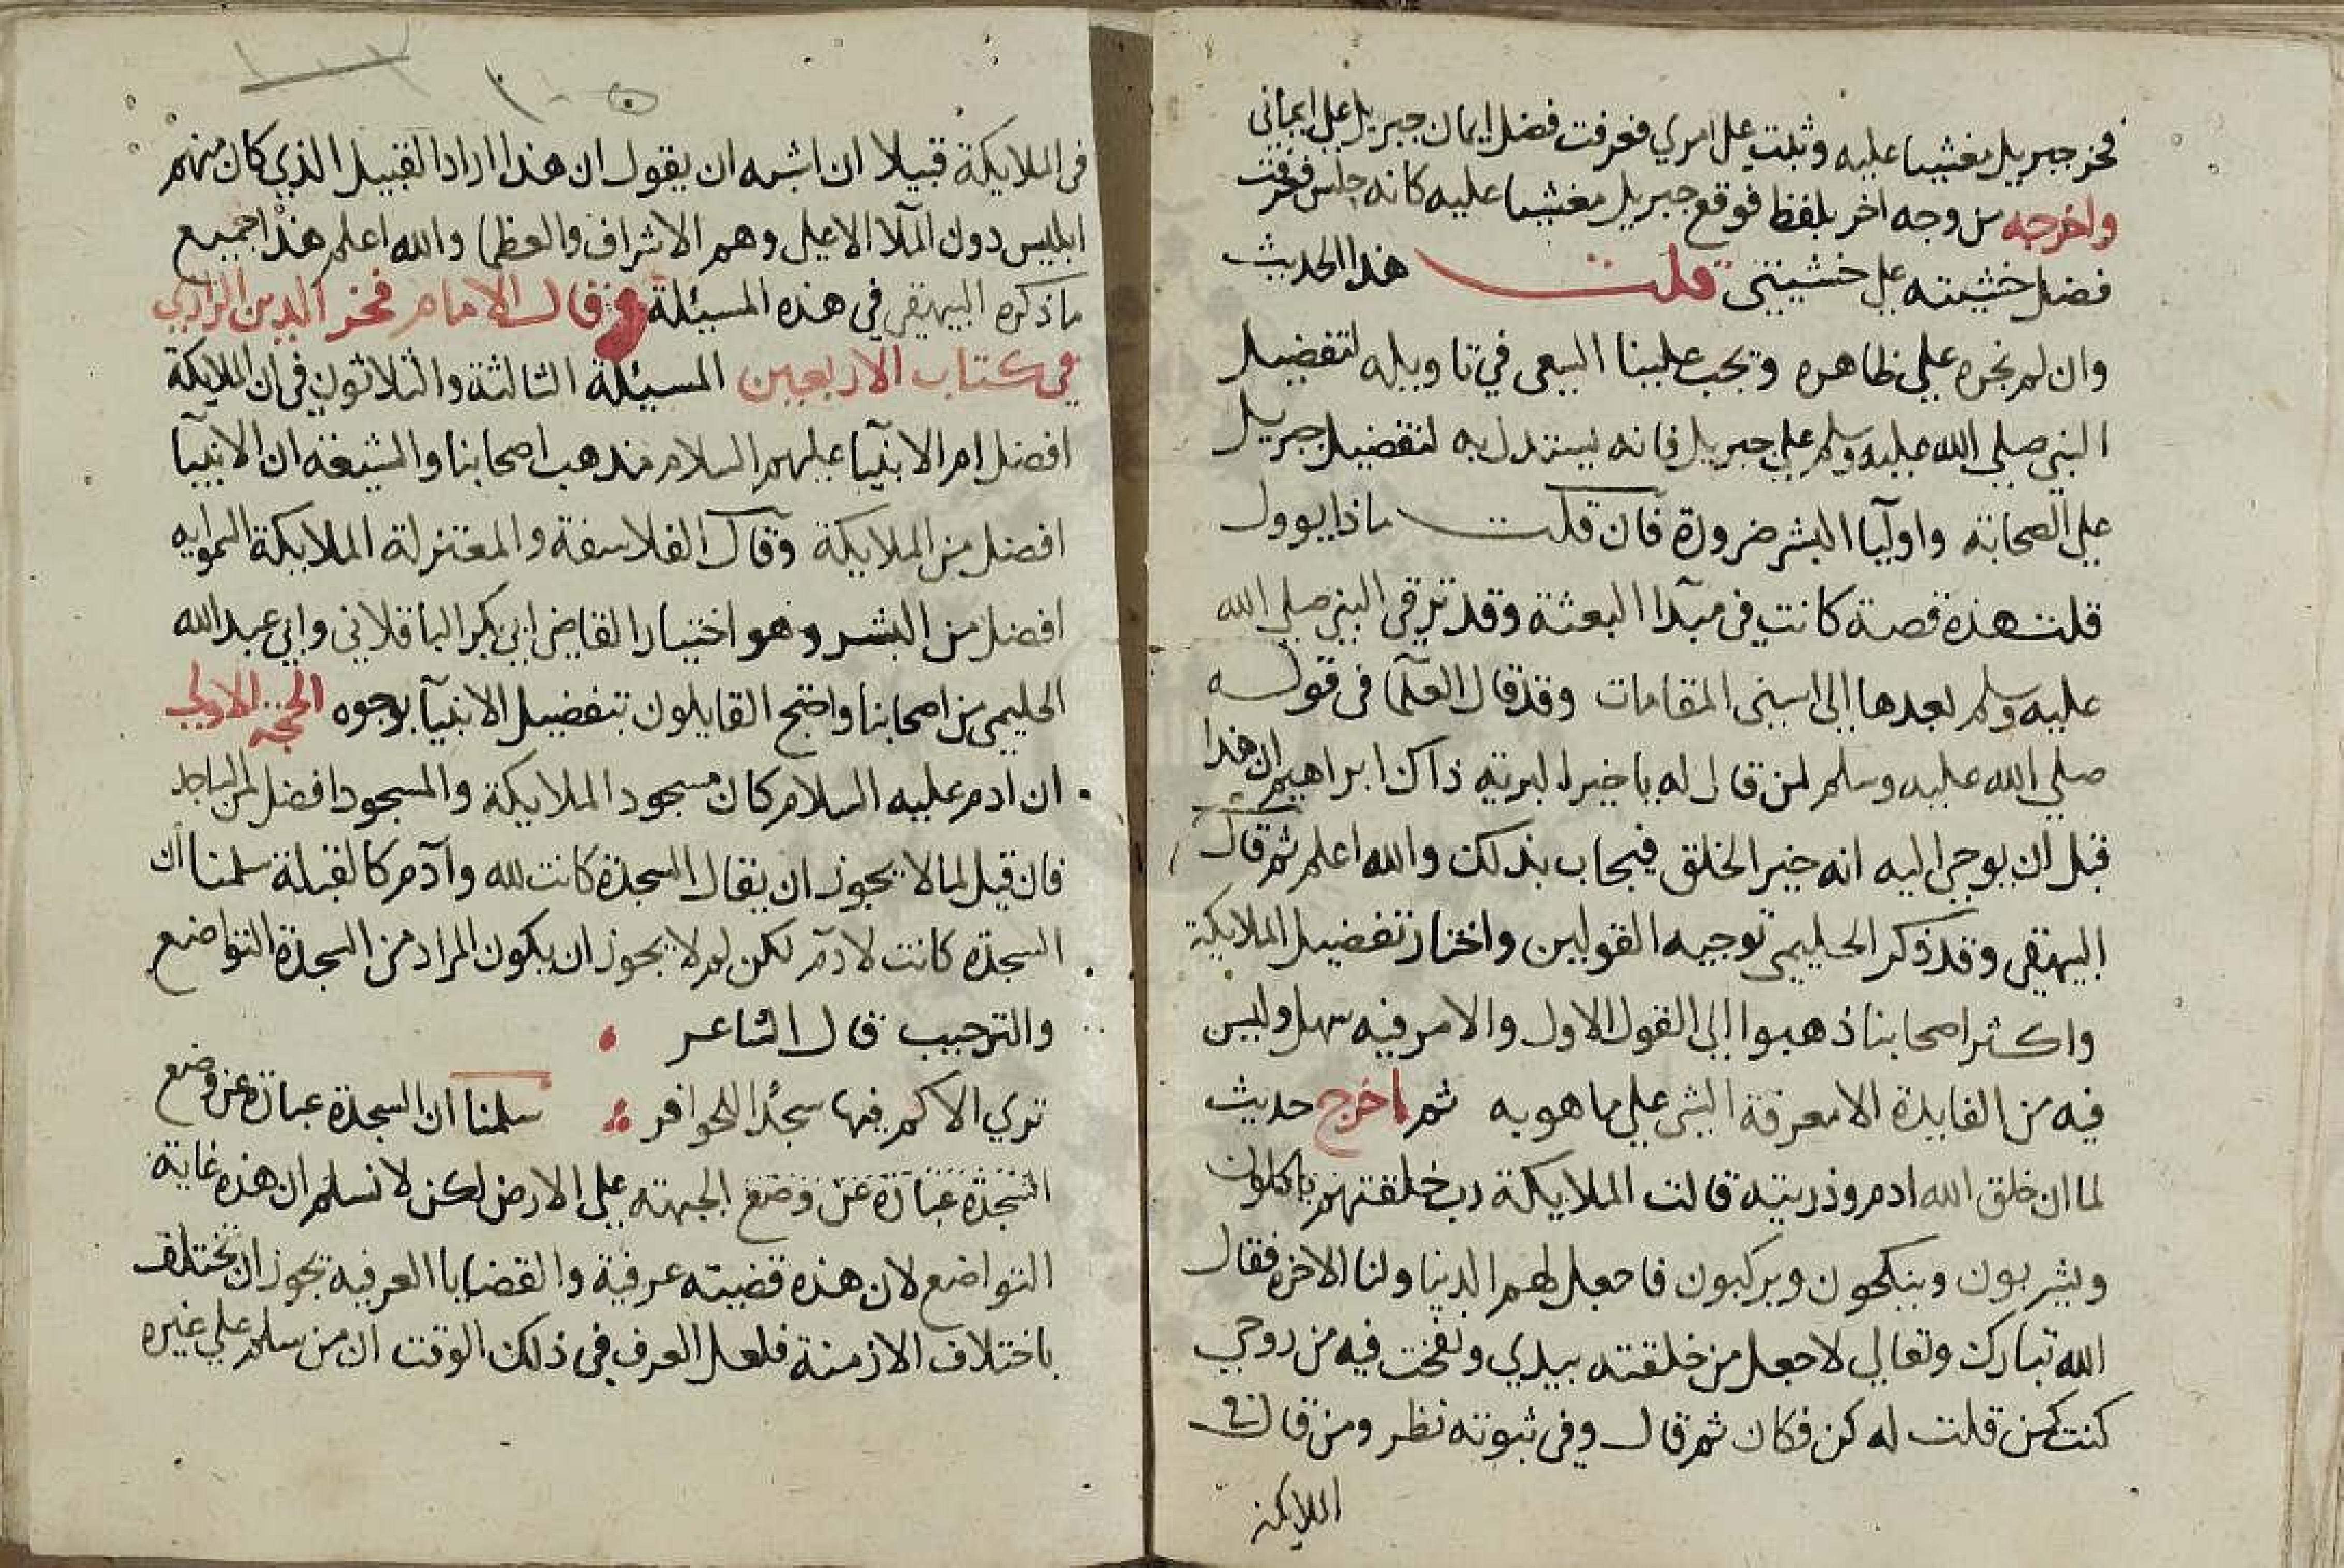 فخر جبريل مغشيا عليه وثبت على امري فعرفت فضل ايمان جبريل على ايماني
واخرجه من وجه اخر بلفظ فوقع جبريل مغشيا عليه كانه حلس فعرفت
فضل خشيته على خشيتى قلت هذا الحديث
وان لم نجره على ظاهره وتجب علينا السعى في تاويله لتفضيل
النبى صلى الله عليه وسلم على جبريل فانه يستدل به لتفضيل جبريل
على الصحابة واوليآ البشر ضرورة فان قلت ماذا يوول
قلت هذه قصة كانت في مبتدا البعثة وقد ترقى النبى صلى الله
عليه وسلم بعدها الى اسنى المقامات وقد قال العلمآ في قوله
صلى الله عليه وسلم لمن قال له يا خير البرية ذاك ابراهيم ان هذا
قبل ان يوحى اليه انه خير الخلق فيجاب بذلك والله اعلم ثم قال
البيهقى وقد ذكر الحليمى توجيه القولين واختار تفضيل الملايكة
واكثر اصحابنا ذهبوا الى القول الاول والامر فيه سهل وليس
فيه من الفايدة الا معرفة الشى على ما هو به ثم اخرج حديث
لما ان خلق الله ادم وذريته قالت الملايكة رب خلقتهم ياكلون
ويشربون وينكحون ويركبون فاجعل لهم الدنيا ولنا الاخرة فقال
الله تبارك وتعالى لا اجعل من خلقته بيدي ونفخت فيه من روحي
كمن قلت له كن فكان ثم قال وفى ثبوته نظر ومن قال في
الملايكة
١٠٥
فى الملايكة قبيلا ان اشبه ان يقول ان هذا اراد القبيل الذي كان منهم
ابليس دون الملآ الاعلى وهم الاشراف والعظما والله اعلم هذا جميع
ما ذكره البيهقى في هذه المسيلة وقال الامام فخر الدين الرازي
في كتاب الاربعين المسيلة الثالثة والثلاثون فى ان الملايكة
افضل ام الانبيآ عليهم السلام مذهب اصحابنا والشيعة ان الانبيآ
افضل من الملايكة وقال الفلاسفة والمعتزلة الملايكة السماويه
افضل من البشر وهو اختيار القاضى ابى بكر الباقلاني وابى عبد الله
الحليمى من اصحابنا واحتج القايلون بتفضيل الانبيآ بوجوه الحجة الاولى
ان ادم عليه السلام كان مسجود الملايكة والمسجود افضل من الساجد
فان قيل لما لا يجوز ان يقال السجدة كانت لله وآدم كالقبلة سلمنا ان
السجدة كانت لادم لكن لم لا يجوز ان يكون المراد من السجدة التواضع
والترحيب قال الشاعر
ترى الاكم فيها سجدًا للحوافر سلمنا ان السجدة عبارة عن وضع
السجدة عبارة عن وضع الجبهة على الارض لكن لا نسلم ان هذه غاية
التواضع لان هذه قضية عرفية والقضايا العرفية يجوز ان تختلف
باختلاف الازمنة فلعل العرف فى ذلك الوقت ان من سلم على غيره